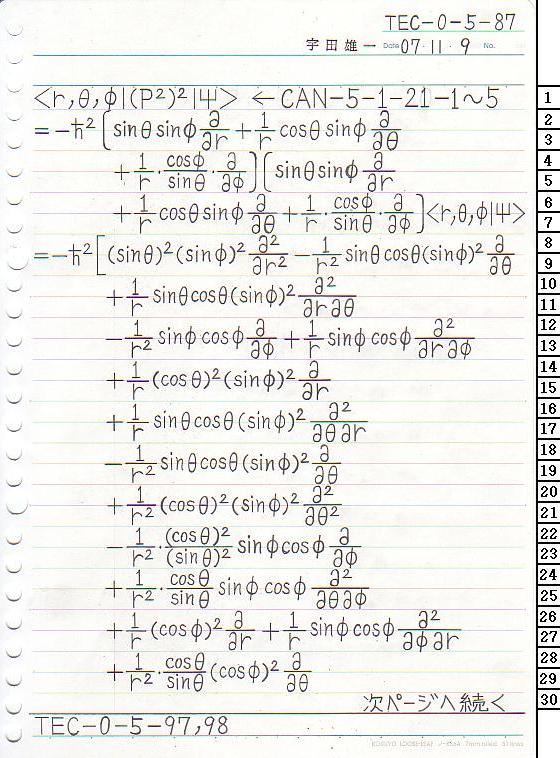 TEC-0-5-87
宇田雄一 Date 07・11・9 No.
<r,θ,φ|(P²)²|Ψ> ← CAN-5-1-21-1~5
= -ħ² [ sinθ sinφ ∂/∂r + 1/r cosθ sinφ ∂/∂θ
+ 1/r · cosφ/sinθ · ∂/∂φ ] [ sinθ sinφ ∂/∂r
+ 1/r cosθ sinφ ∂/∂θ + 1/r · cosφ/sinθ · ∂/∂φ ] <r,θ,φ|Ψ>
= -ħ² [ (sinθ)² (sinφ)² ∂²/∂r² - 1/r² sinθ cosθ (sinφ)² ∂/∂θ
+ 1/r sinθ cosθ (sinφ)² ∂²/∂r∂θ
- 1/r² sinφ cosφ ∂/∂φ + 1/r sinφ cosφ ∂²/∂r∂φ
+ 1/r (cosθ)² (sinφ)² ∂/∂r
+ 1/r sinθ cosθ (sinφ)² ∂²/∂θ∂r
- 1/r² sinθ cosθ (sinφ)² ∂/∂θ
+ 1/r² (cosθ)² (sinφ)² ∂²/∂θ²
- 1/r² · (cosθ)²/(sinθ)² sinφ cosφ ∂/∂φ
+ 1/r² · cosθ/sinθ sinφ cosφ ∂²/∂θ∂φ
+ 1/r (cosφ)² ∂/∂r + 1/r sinφ cosφ ∂²/∂φ∂r
+ 1/r² · cosθ/sinθ (cosφ)² ∂/∂θ
次ページへ続く
TEC-0-5-97,98
KOKUYO LOOSE-LEAF 7mm ruled 31 lines
1
2
3
4
5
6
7
8
9
10
11
12
13
14
15
16
17
18
19
20
21
22
23
24
25
26
27
28
29
30